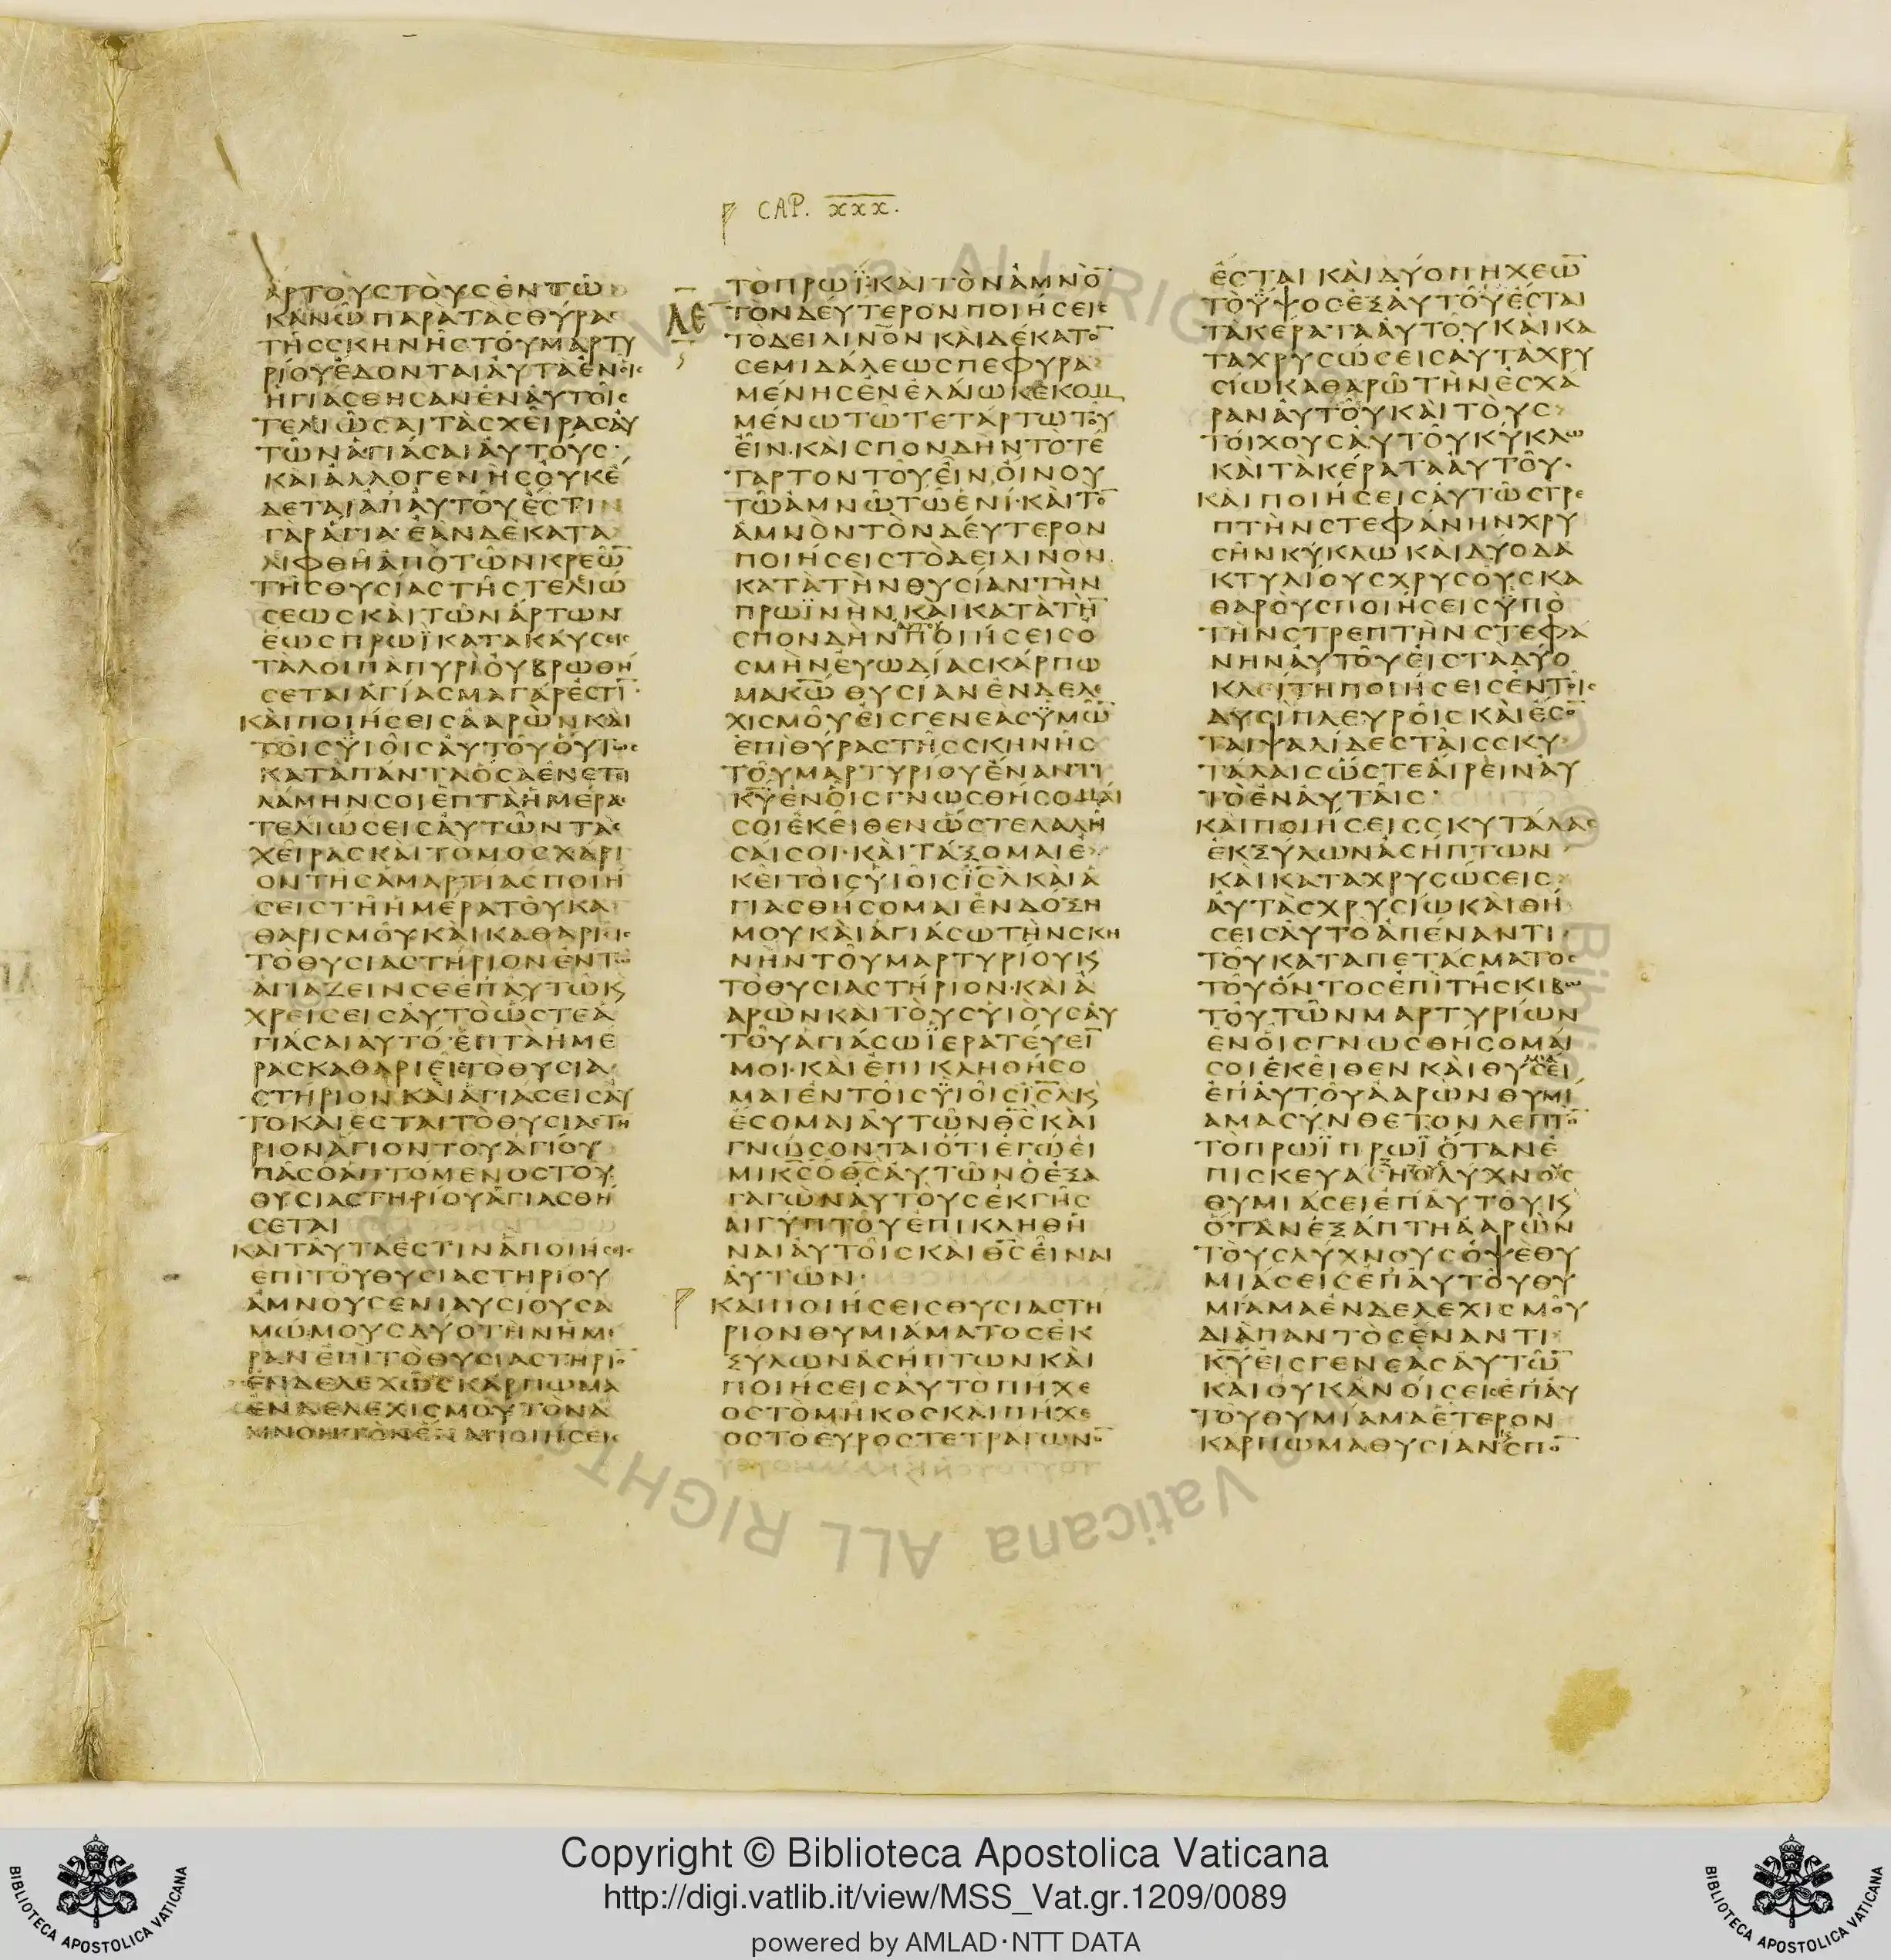 CAP. XXX.
ἄρτους τοὺς ἐν τῶ
κανῶ παρὰ τὰς θύρας
τῆς σκηνῆς τοῦ μαρτυ
ρίου ἔδονται αὐτὰ ἐν οἷς
ἡγιάσθησαν ἐν αὐτοῖς
τελειῶσαι τὰς χεῖρας αὐ
τῶν ἁγιάσαι αὐτούς·
καὶ ἀλλογενὴς οὐκ ἔ
δεται ἀπ αὐτοῦ ἔστιν
γὰρ ἅγια· ἐὰν δὲ κατα
λιφθῆ ἀπὸ τῶν κρεῶ̅
τῆς θυσίας τῆς τελειώ
σεως καὶ τῶν ἄρτων
ἕως πρωῒ κατακαύσεις
τὰ λοιπὰ πυρὶ οὐ βρωθή
σεται ἁγίασμα γάρ ἐστι̅·
καὶ ποιήσεις ἀαρὼν καὶ
τοῖς ϋἱοῖς αὐτοῦ οὕτως
κατὰ πάντα ὅσα ἐνετει
λάμην σοι ἑπτὰ ἡμέρας
τελιώσεις αὐτῶν τὰς
χεῖρας καὶ τὸ μοσχάρι
ον τῆς ἁμαρτίας ποιή
σεις τῆ ἡμέρα τοῦ κα
θαρισμοῦ καὶ καθαριεῖς
τὸ θυσιαστήριον ἐν τῶ
ἁγιάζειν σε ἐπ αὐτῶ κ̀
χρείσεις αὐτὸ ὥστε ἁ
γιάσαι αυτό· ἑπτὰ ἡμέ
ρας καθαριεῖς τὸ θυσια
στήριον καὶ ἁγιάσεις αὐ
το καὶ ἔσται τὸ θυσιαστή
ριον ἅγιον τοῦ ἁγίου
πᾶς ὁ ἁπτόμενος τοῦ
θυσιαστηρίου ἁγιασθή
σεται
καὶ ταῦτά ἐστιν ἃ ποιήσεις
ἐπὶ τοῦ θυσιαστηρίου
ἀμνοὺς ἐνιαυσίους ἀ
μώμους δύο τὴν ἡμέ
ραν ἐπὶ τὸ θυσιαστήριο̅
ἐνδελεχῶς κάρπωμα
ἐνδελεχισμοῦ τὸν ἀ
μνὸν τὸν ἕνα ποιήσεις
ΛΕ
τὸ πρωΐ· καὶ τὸν ἀμνὸ̅
τὸν δεύτερον ποιήσεις
τὸ δειλινὸν καὶ δέκατο̅
σεμιδάλεως πεφυρα
μένης ἐν ἐλαίω κεκομ
μένω τῶ τετάρτω τοῦ
εἲν· καὶ σπονδὴν τὸ τέ
ταρτον τοῦ εἲν οἴνου
τῶ ἀμνῶ τῶ ἑνί· καὶ το̅
ἀμνὸν τὸν δεύτερον
ποιήσεις τὸ δειλινὸν
κατὰ τὴν θυσίαν τὴν
πρωϊνὴν καὶ κατὰ τὴ̅
σπονδὴν αὐτοῦ ποιήσεις ὀ
σμὴν εὐωδίας κάρπω
μα κ̅ω̅ θυσίαν ἐνδελε
χισμοῦ εἰς γενεὰς ϋμῶ̅
ἐπὶ θύρας τῆς σκηνῆς
τοῦ μαρτυρίου ἔναντι
κ̅υ̅ ἐν οἷς γνωσθήσομαί
σοι ἐκεῖθεν ὥστε λαλῆ
σαί σοι· καὶ τάξομαι ἐ
κεῖ τοῖς υἱοῖς ι̅σ̅λ̅ καὶ ἁ
γιασθήσομαι ἐν δόξη
μου καὶ ἁγιάσω τὴν σκη
νὴν τοῦ μαρτυρίου κ̀
τὸ θυσιαστήριον· καὶ ἀ
αρὼν καὶ τοὺς υἱοὺς αὐ
τοῦ ἁγιάσω ϊερατεύει̅
μοι· καὶ ἐπικληθήσο
μαι ἐν τοῖς ϋἱοῖς ι̅σ̅λ̅ κ̀
ἔσομαι αὐτῶν θ̅σ̅ καὶ
γνώσονται ὅτι ἐγώ εἰ
μι κ̅σ̅ ὁ θ̅σ̅ αὐτῶν ὁ ἐξα
γαγὼν αὐτοὺς ἐκ γῆς
αἰγύπτου ἐπικληθῆ
ναι αὐτοῖς καὶ θ̅σ̅ εἶναι
αὐτῶν·
καὶ ποιήσεις θυσιαστή
ριον θυμιάματος ἐκ
ξύλων ἀσήπτων καὶ
ποιήσεις αὐτὸ πήχε
ος τὸ μῆκος καὶ πήχε
ος τὸ εὖρος τετράγωνο̅
ἔσται καὶ δύο πήχεω̅
τὸ ὕψος ἐξ αὐτοῦ ἔσται
τὰ κέρατα αὐτοῦ καὶ κα
ταχρυσώσεις αὐτὰ χρυ
σίω καθαρῶ τὴν ἐσχά
ραν αὐτοῦ καὶ τοὺς
τοίχους αὐτοῦ κύκλω
καὶ τὰ κέρατα αὐτοῦ·
καὶ ποιήσεις αὐτῶ στρε
πτὴν στεφάνην χρυ
σῆν κύκλω καὶ δύο δα
κτυλίους χρυσοῦς κα
θαροὺς ποιήσεις ϋπὸ
τὴν στρεπτὴν στεφά
νην αὐτοῦ εἰς τὰ δύο
κλείτη ποιήσεις ἐν τοῖς
δυσὶ πλευροῖς καὶ ἔσο̅
ται ψαλίδες ταῖς σκυ
τάλαις ὥστε αἴρειν αὐ
τὸ ἐν αὐταῖς·
καὶ ποιήσεις σκυτάλας
ἐκ ξύλων ἀσήπτων
καὶ καταχρυσώσεις
αὐτὰς χρυσίω καὶ θή
σεις αὐτὸ ἀπέναντι
τοῦ καταπετάσματος
τοῦ ὄντος ἐπὶ τῆς κιβω
τοῦ τῶν μαρτυρίων
ἐν οἷς γνωσθήσομαί
σοι ἐκεῖθεν καὶ θυμιάσει
ἐπ αὐτοῦ ἀαρὼν θυμί
αμα σύνθετον λεπτὸ̅
τὸ πρωῒ πρωῒ ὅταν ἐ
πισκευάζη τοὺς λύχνους
θυμιάσει ἐπ αὐτοῦ κ̀
ὅταν ἐξάπτη ἀαρὼν
τοὺς λύχνους ὀψὲ θυ
μιάσεις ἐπ αὐτοῦ θυ
μίαμα ἐνδελεχισμοῦ
διὰ παντὸς ἔναντι
κ̅υ̅ εἰς γενεὰς αὐτῶ̅
καὶ οὐκ ἀνοίσεις ἐπ αὐ
τοῦ θυμίαμα ἕτερον
κάρπωμα θυσίαν κ̀ σπο̅
Copyright © Biblioteca Apostolica Vaticana
http://digi.vatlib.it/view/MSS_Vat.gr.1209/0089
powered by AMLAD·NTT DATA
BIBLIOTECA APOSTOLICA VATICANA
BIBLIOTECA APOSTOLICA VATICANA